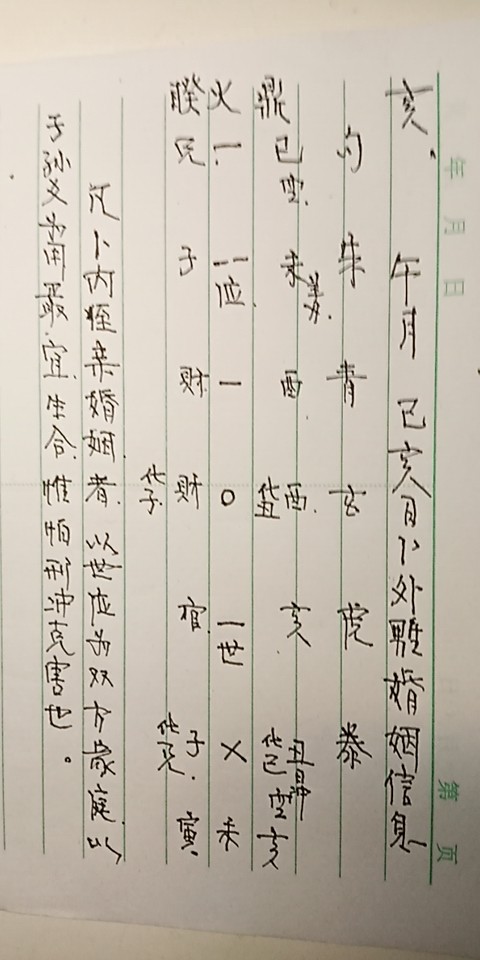 年 月 日 第 页
亥、 午月 己亥日卜外婚姻信息
勾 朱 青 玄 虎 泰
鼎 巳空 未 酉 酉化丑 亥 丑 化巳空亥
火 一 一一位 一 〇 一世 乂 未
睽 兄 子 财 财化子 官 子化兄 寅
凡卜内侄亲婚姻者、以世位为双方家庭、以
子孙爻为用最宜生合、惟怕刑冲克害也。